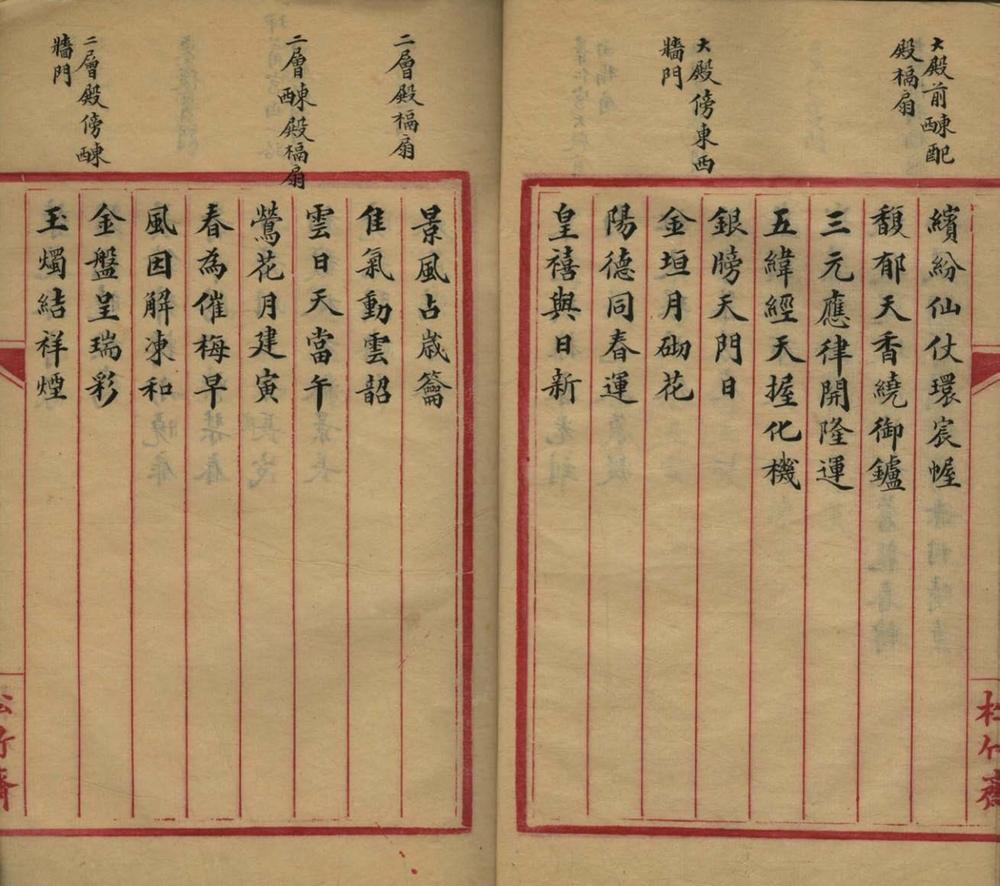 大殿前醂配
殿槅扇
繽紛仙仗環宸幄
馥郁天香繞御鑪
三元應律開隆運
五緯經天握化機
大殿傍東西
牆門
銀牓天門日
金垣月砌花
陽德同春運
皇禧與日新
松竹齋
二層殿槅扇
景風占歲籥
佳氣動雲韶
二層醂殿槅扇
雲日天當午
鶯花月建寅
春為催梅早
風因解凍和
二層殿傍醂
牆門
金盤呈瑞彩
玉燭結祥煙
松竹齋